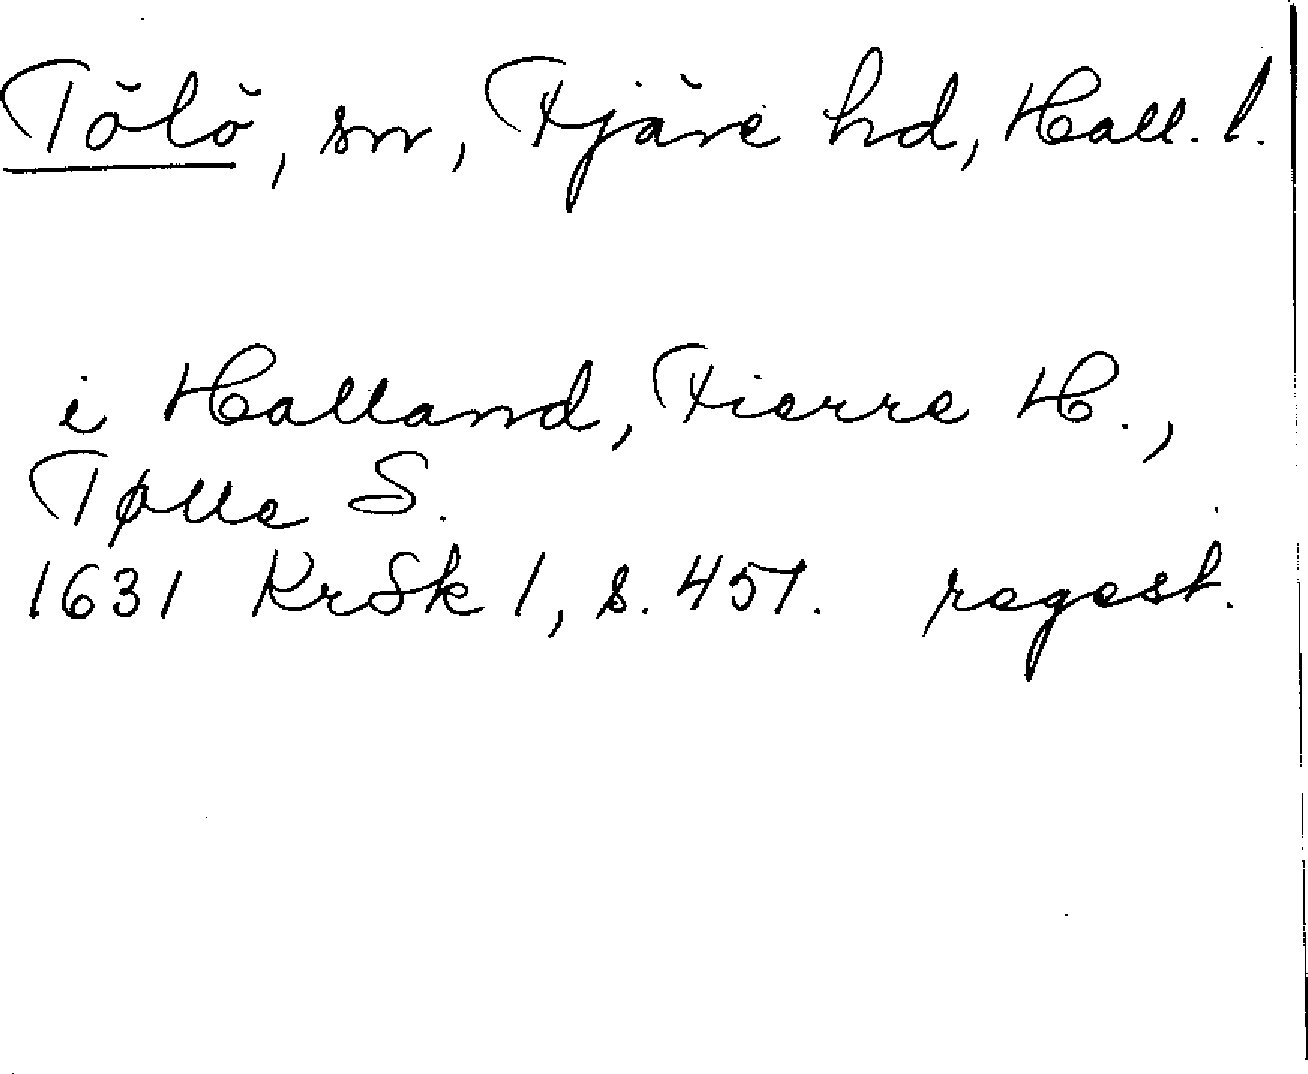 Tölö, sn, Fjäre hd, Hall. l.
i Halland, Fierre H.,
Tølle S.
1631 KrSk 1, s. 457. regest.